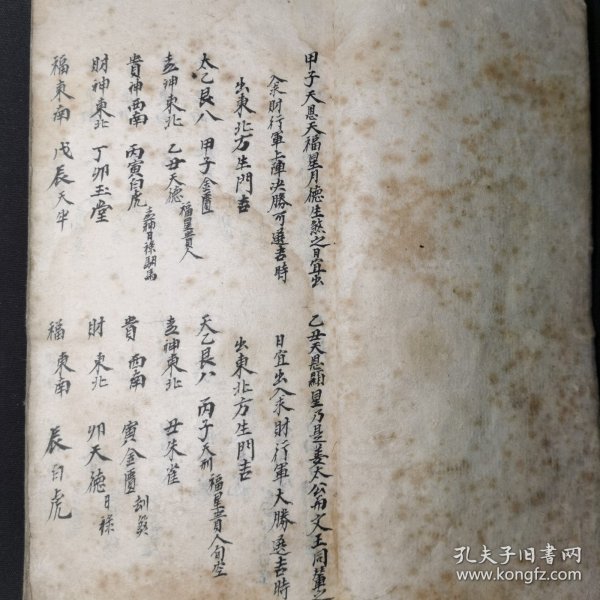 甲子天恩天福星月德生煞之日宜出
入求財行軍上陣決勝可選吉時
出東北方生門吉
太乙艮八 甲子金匱 福星貴人
喜神東北 乙丑天德
貴神西南 丙寅白虎 喜神日祿馹馬
財神東北 丁卯玉堂
福東南 戊辰天牢
乙丑天恩顯星乃是姜太公與文王同輦之
日宜出入求財行軍大勝選吉時
出東北方生門吉
天乙艮八 丙子天刑 福星貴人旬空
喜神東北 丑朱雀
貴西南 寅金匱 刮煞
財東北 卯天德 日祿
福東南 辰白虎
孔夫子旧書网
www.kongfz.com